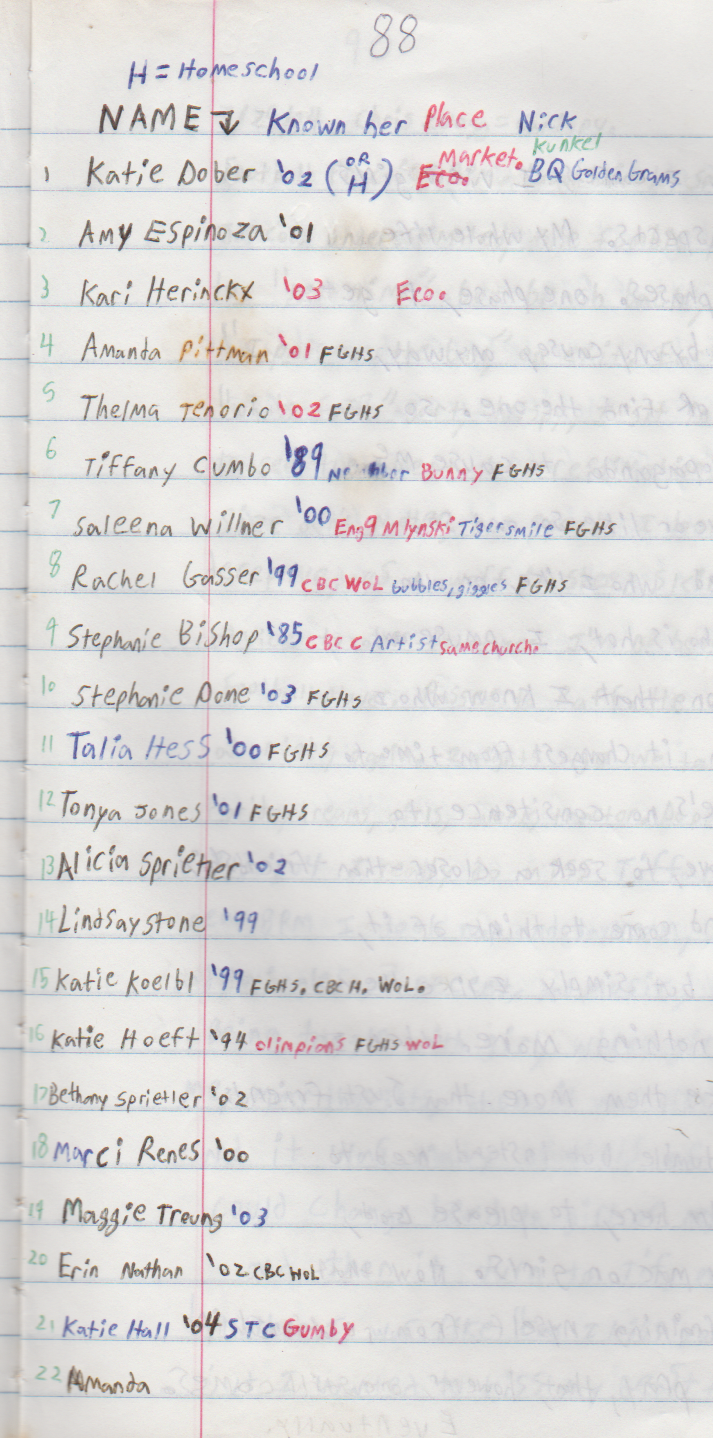 88
H = Homeschool
NAME Known her Place Nick
kunkel
1 Katie Dober '02 (OR H) Eco. Market. BQ Golden Grams
2 Amy Espinoza '01
3 Kari Herinckx '03 Eco.
4 Amanda Pittman '01 FGHS
5 Thelma Tenorio '02 FGHS
6 Tiffany Cumbo '89 Bunny FGHS
7 Saleena Willner '00 Eng9 Mlynski Tigersmile FGHS
8 Rachel Gasser '99 CBC WOL bubbles, giggles FGHS
9 Stephanie Bishop '85 CBC C Artist same church.
10 Stephanie Dome '03 FGHS
11 Talia Hess '00 FGHS
12 Tonya Jones '01 FGHS
13 Alicia Sprietler '02
14 Lindsay Stone '99
15 Katie Koelbl '99 FGHS. CBC H. WOL.
16 Katie Hoeft '94 olimpions FGHS WOL
17 Bethany Sprietler '02
18 Marci Renes '00
19 Maggie Treung '03
20 Erin Nathan '02 CBC WOL
21 Katie Hall '04 STC Gumby
22 Amanda